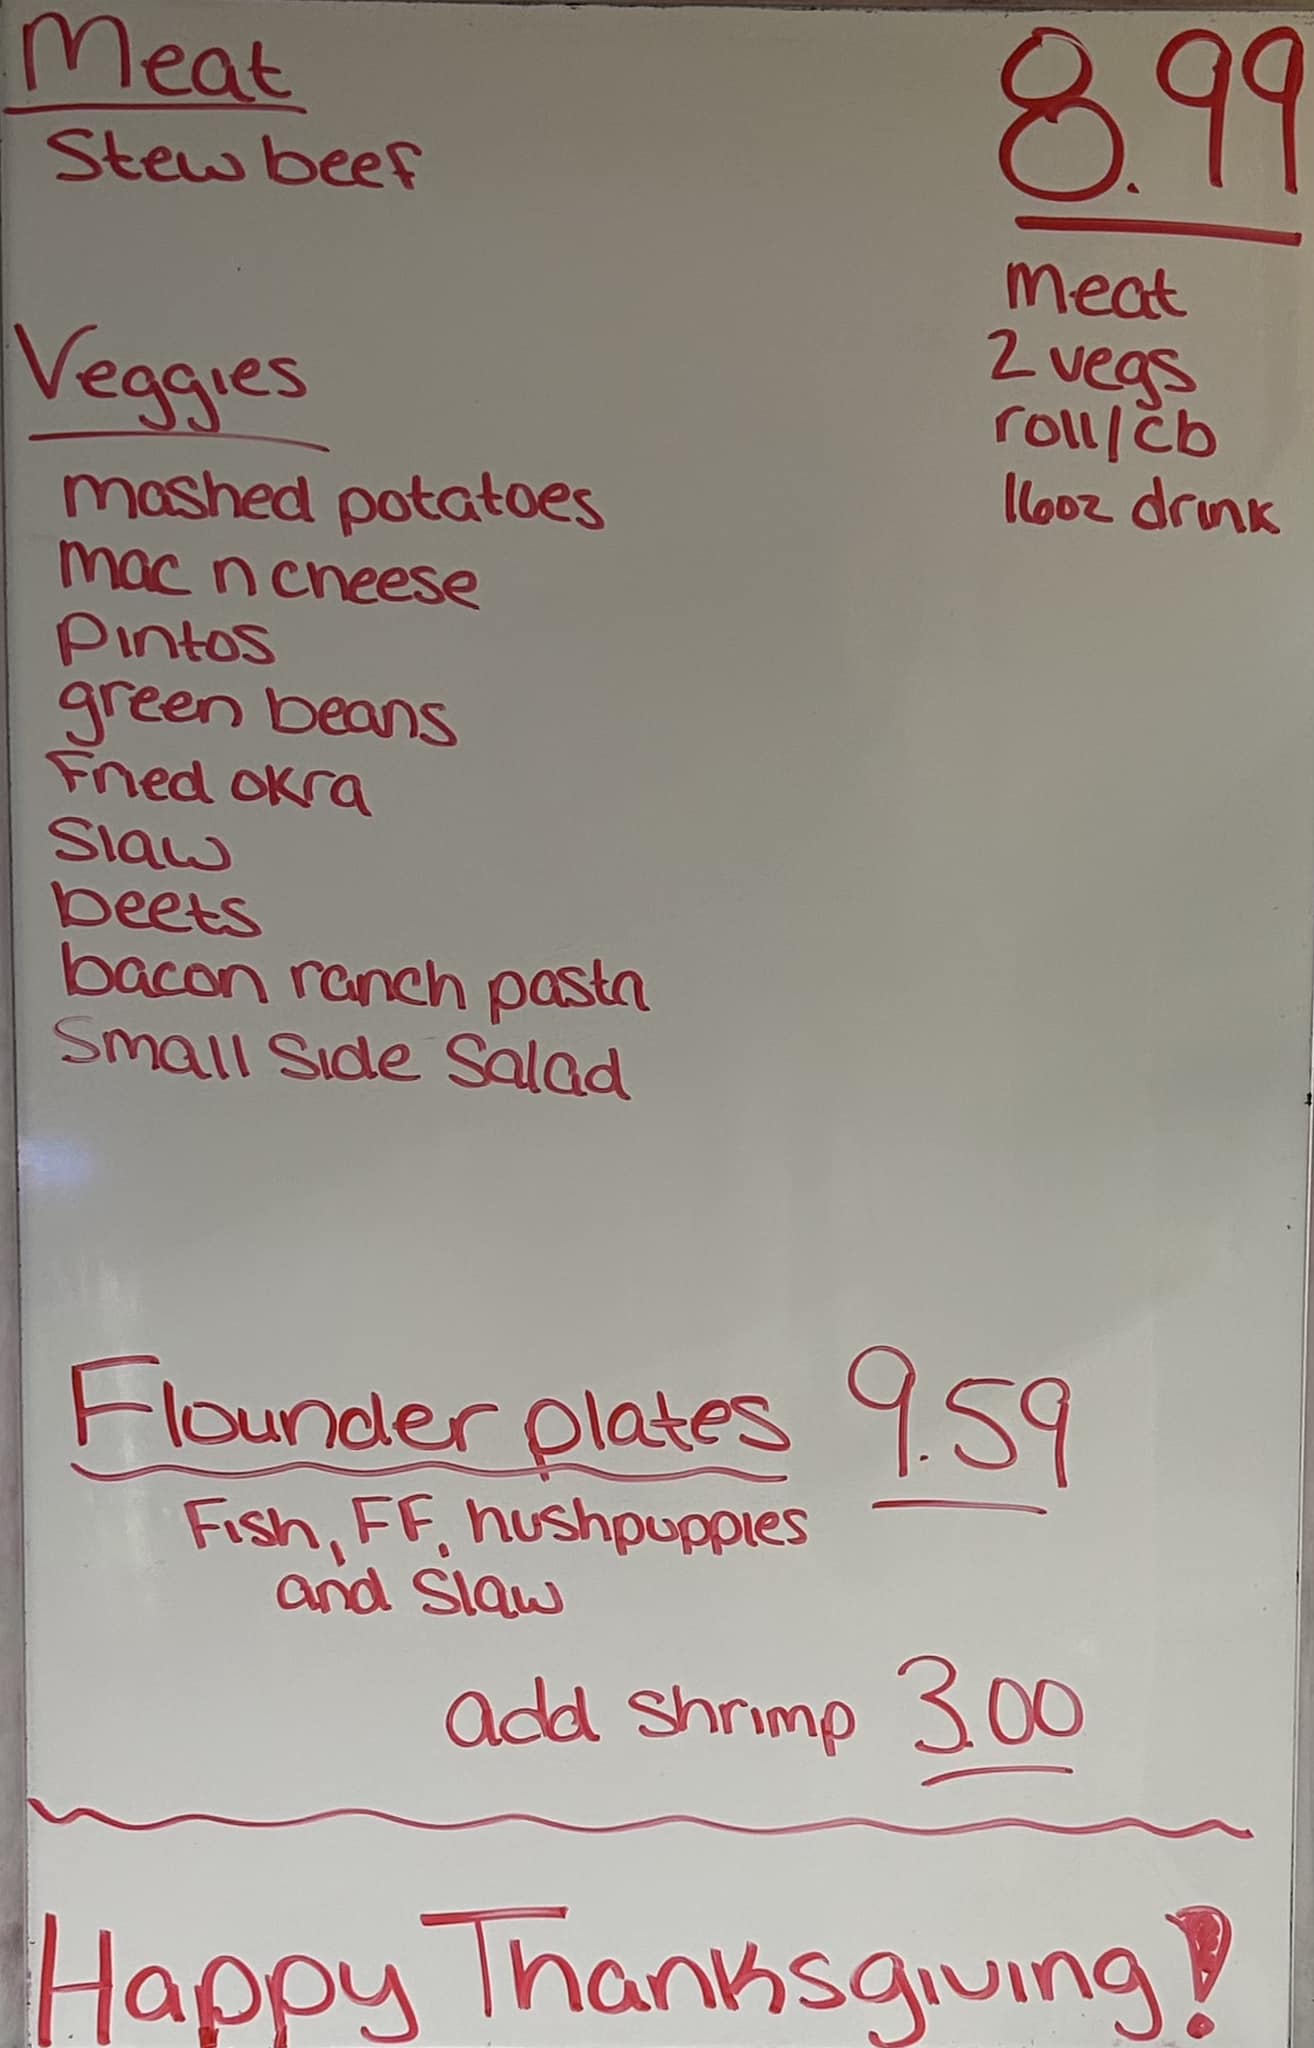 Meat
Stew beef
8.99
meat
2 vegs
roll/cb
16oz drink
Veggies
mashed potatoes
mac n cheese
pintos
green beans
Fried okra
Slaw
beets
bacon ranch pasta
Small Side Salad
Flounder plates 9.59
Fish, FF, hushpuppies
and Slaw
add shrimp 3.00
Happy Thanksgiving!